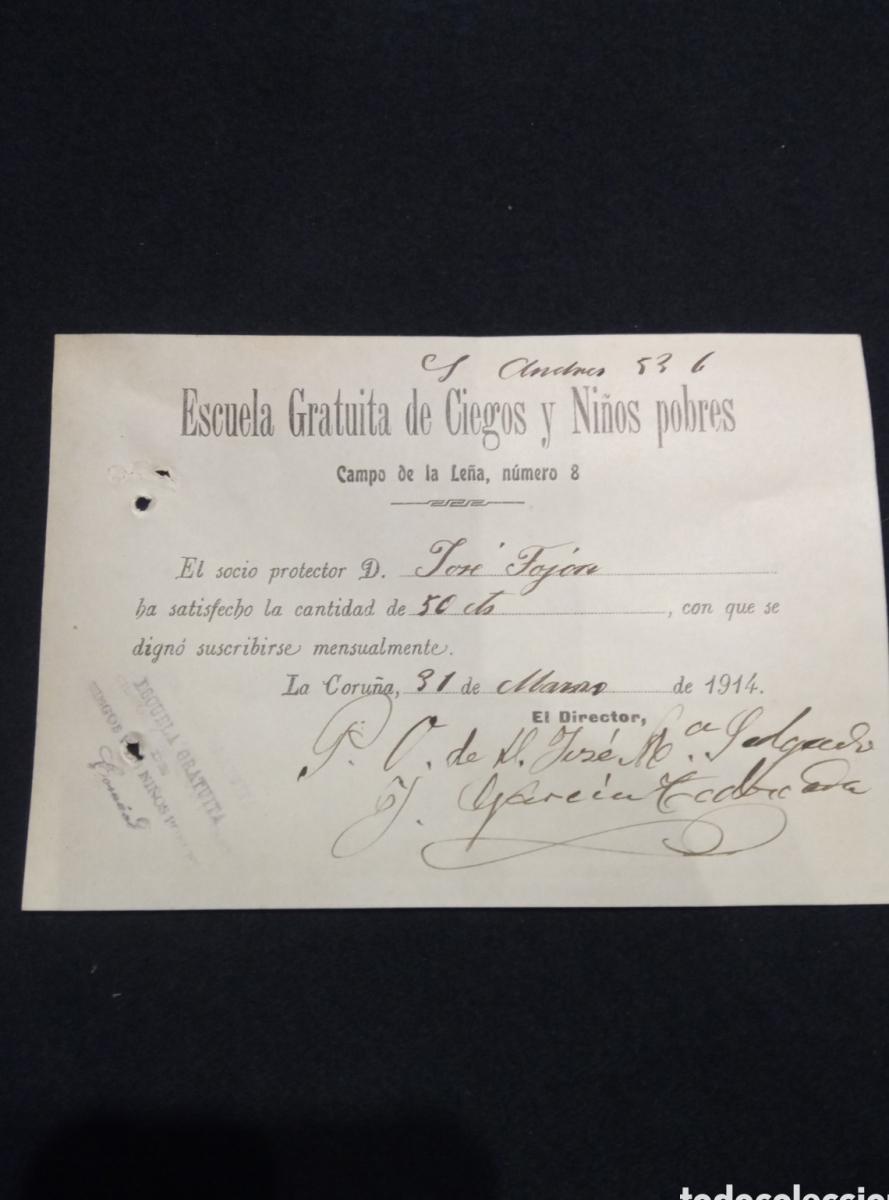 S Andres 53 6
Escuela Gratuita de Ciegos y Niños pobres
Campo de la Leña, número 8
El socio protector D. José Fojón
ha satisfecho la cantidad de 50 cts, con que se
dignó suscribirse mensualmente.
La Coruña, 31 de Marzo de 1914.
El Director,
P. O. de D. José Mª Salgado
J. García
ESCUELA GRATUITA
DE
CIEGOS Y NIÑOS POBRES
Coruña
todocoleccion